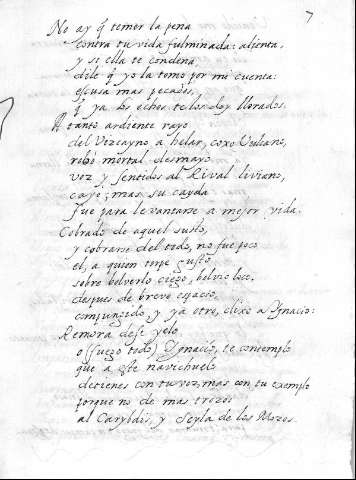 7
No ay q̃ temer la pena
contra tu vida fulminada: alienta,
y si ella te condena,
dile q̃ yo la tomo por mi cuenta:
escusa mas pecados,
q̃ ya los echos te los doy llorados.
A tanto ardiente rayo
del Vizcayno a helar, coxo Vulcano,
robó mortal desmayo
voz y sentidos al Rival liviano,
cayó; mas su cayda
fue para levantarse a mejor vida.
Cobrado de aquel susto,
y cobrarse del todo, no fue poco
el, a quien torpe gusto
sobre bolverlo ciego, bolvio loco,
despues de breve espacio,
compungido, y ya otro, dixo a Ignacio:
Remora dese yelo
o (fuego todo) Ignacio, te contemplo
que a este navichuelo
detienes con tu voz, mas con tu exemplo
porque no de mas trozos
al Carybdis, y Scyla de los Mozos.